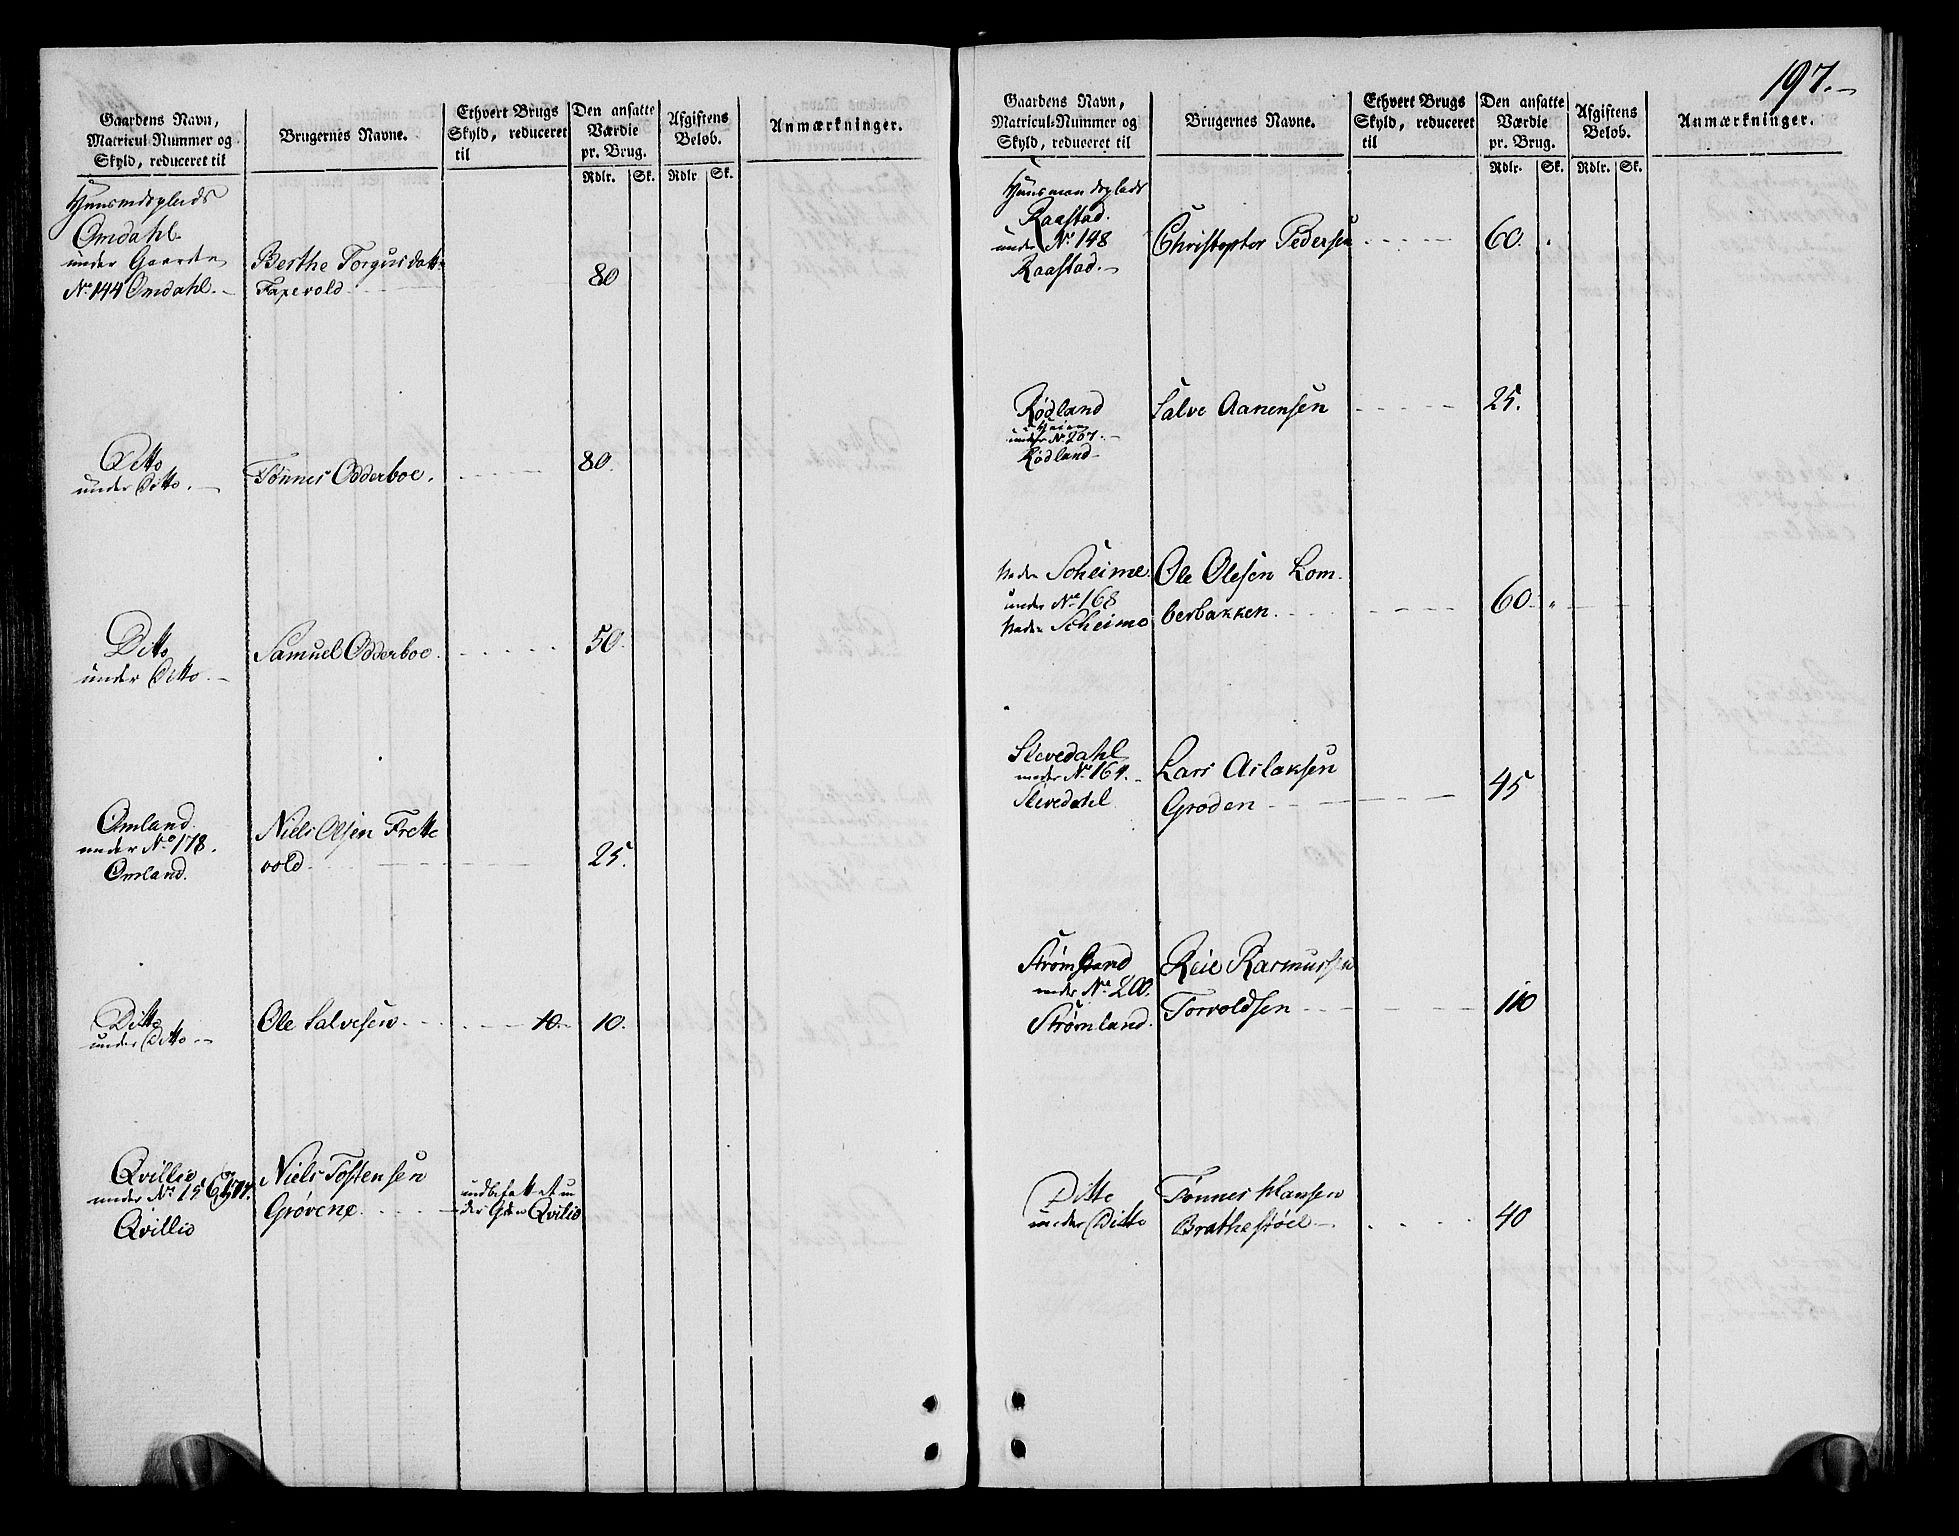 Gaardens Navn,
Matricul-Nummer og
Skyld, reduceret til
Brugernes Navne.
Ethvert Brugs
Skyld, reduceret
til
Den ansatte
Værdie
pr. Brug.
Rdlr. Sk.
Afgiftens
Belob.
Rdlr Sk.
Anmærkninger.
Huusmdsplads
Omdahl
under Gaarden
No. 144 Omdahl.
Berthe Torgusdatt
80
Ditto
under Ditto.
Tønnes Odderboe.
80.
Ditto
under Ditto.
Samuel Odderboe.
50.
Omland
under No. 178.
Omland.
Niels Olsen Frette
vold
25.
Ditto
under Ditto.
Ole Salvesen
10. 10.
Qvillio
under No. 156
Qvillio
Niels Tostensen
Grøvene
indbefattet un
der Gden Qvilio
197.
Gaardens Navn,
Matricul-Nummer og
Skyld, reduceret til
Brugernes Navne.
Ethvert Brugs
Skyld, reduceret
til
Den ansatte
Værdie
pr. Brug.
Rdlr. Sk.
Afgiftens
Belob.
Rdlr. Sk.
Anmærkninger.
Huusmandsplads
Raastad.
under No. 148
Raastad.
Christopher Pedersen
60.
Rødland
i Heien
under No. 207.
Rødland
Salve Aanensen
25.
Neder Scheime
under No. 168
Neder Scheime
Ole Olesen Lom
berbakken.
60.
Slevedahl
under No. 164.
Slevedahl
Lars Aslaksen
Groden
45
Strømland
under No. 200.
Strømland.
Reie Rasmussen
Torvoldsen
110
Ditto
under Ditto
Tønnes Hansen
Brathestøel
40